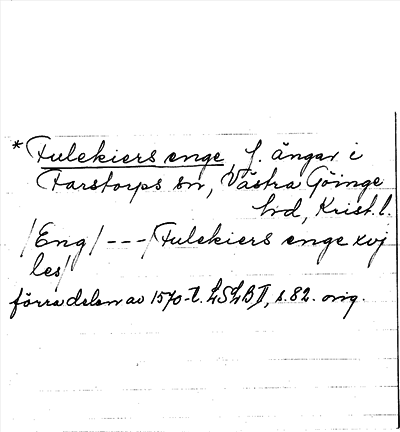 * Fulekiers enge, f. ängar i
Farstorps sn, Västra Göinge
hd, Krist. l.
/Eng/ --- /Fulekiers enge xvj
les/
förra delen av 1570-t. LSLB II, s. 82. orig.